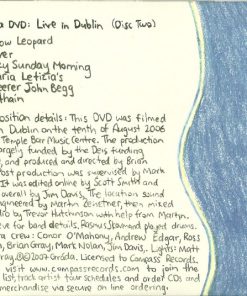 a DVD: Live in Dublin (Disc Two)
ow Leopard
ver
ky Sunday Morning
aria Letizia's
eerer John Begg
thain
position details: This DVD was filmed
n Dublin on the tenth of August 2006
Temple Bar Music Centre. The production
argely funded by the Deis funding
e, and produced and directed by Brian
Post production was supervised by Mark
It was edited online by Scott Smith and
overall by Jim Davis. The location sound
ngineered by Martin, then mixed
io by Trevor Hutchinson with help from Martin.
ve for band details, played drums.
a crew: Conor O'Mahony, Andrew Edgar, Ross
n, Brian Gray, Mark Nolan, Jim Davis. Lights: Matt
ray. ©℗2007 Gráda. Licensed to Compass Records.
visit www.compassrecords.com to join the
list, track artist tour schedules and order CDs and
merchandise via secure on line ordering.